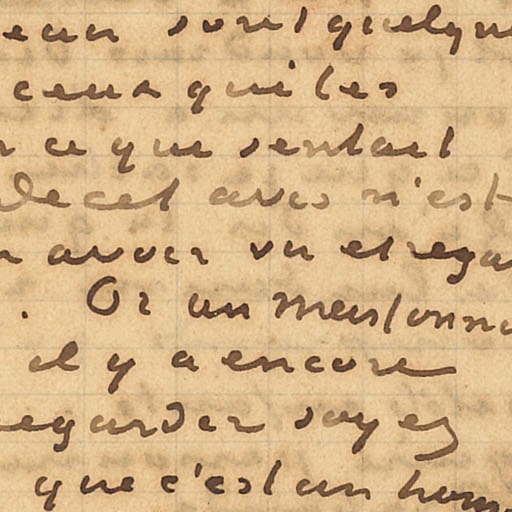 eau sont quelque
ceux qui les
r ce que sentait
de cet avis n'est
avoir vu et regar
. Or un mensonn
il y a encore
regarder soyez
que c'est un hom